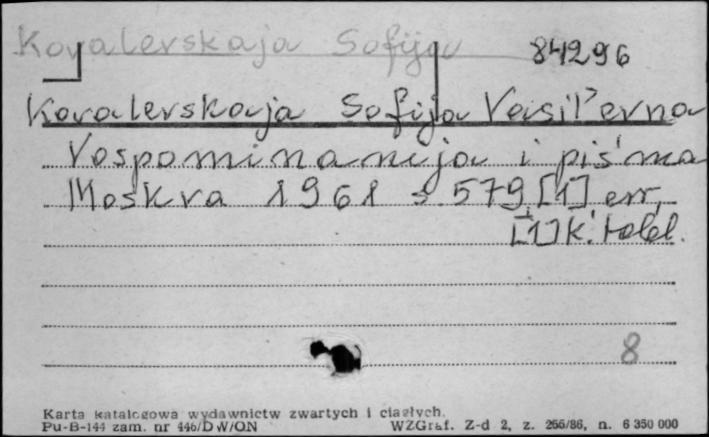 Kovalevskaja Sofija 84296
Kovalevskaja Sofija Vasil'evna
Vospominanija i pis'ma
Moskva 1961 s. 579, [1] err,
[1] k. tabl.
8
Karta katalogowa wydawnictw zwartych i ciągłych.
Pu-B-144 zam. nr 446/DW/ON WZGraf. Z-d 2, z. 266/86, n. 6 350 000